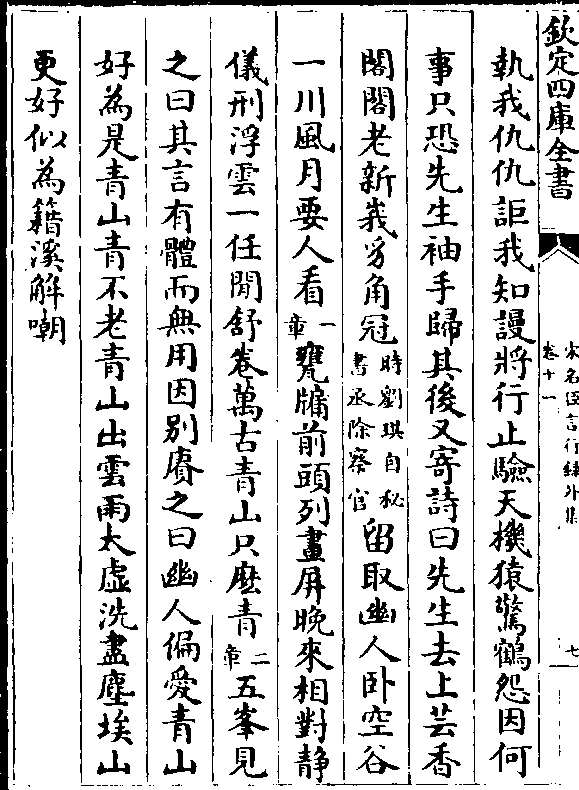 欽定四庫全書
宋名臣言行録外集
卷十一
七
執我仇仇詎我知謾將行止驗天機猿驚鶴怨因何
事只恐先生袖手歸其後又寄詩曰先生去上芸香
閣閣老新峩豸角冠時劉珙自秘書丞除察官留取幽人卧空谷
一川風月要人看一章甕牖前頭列畫屏晩來相對静
儀刑浮雲一任閒舒卷萬古青山只麽青二章五峯見
之曰其言有體而無用因别賡之曰幽人偏愛青山
好為是青山青不老青山出雲雨太虚洗盡塵埃山
更好似為籍溪解嘲